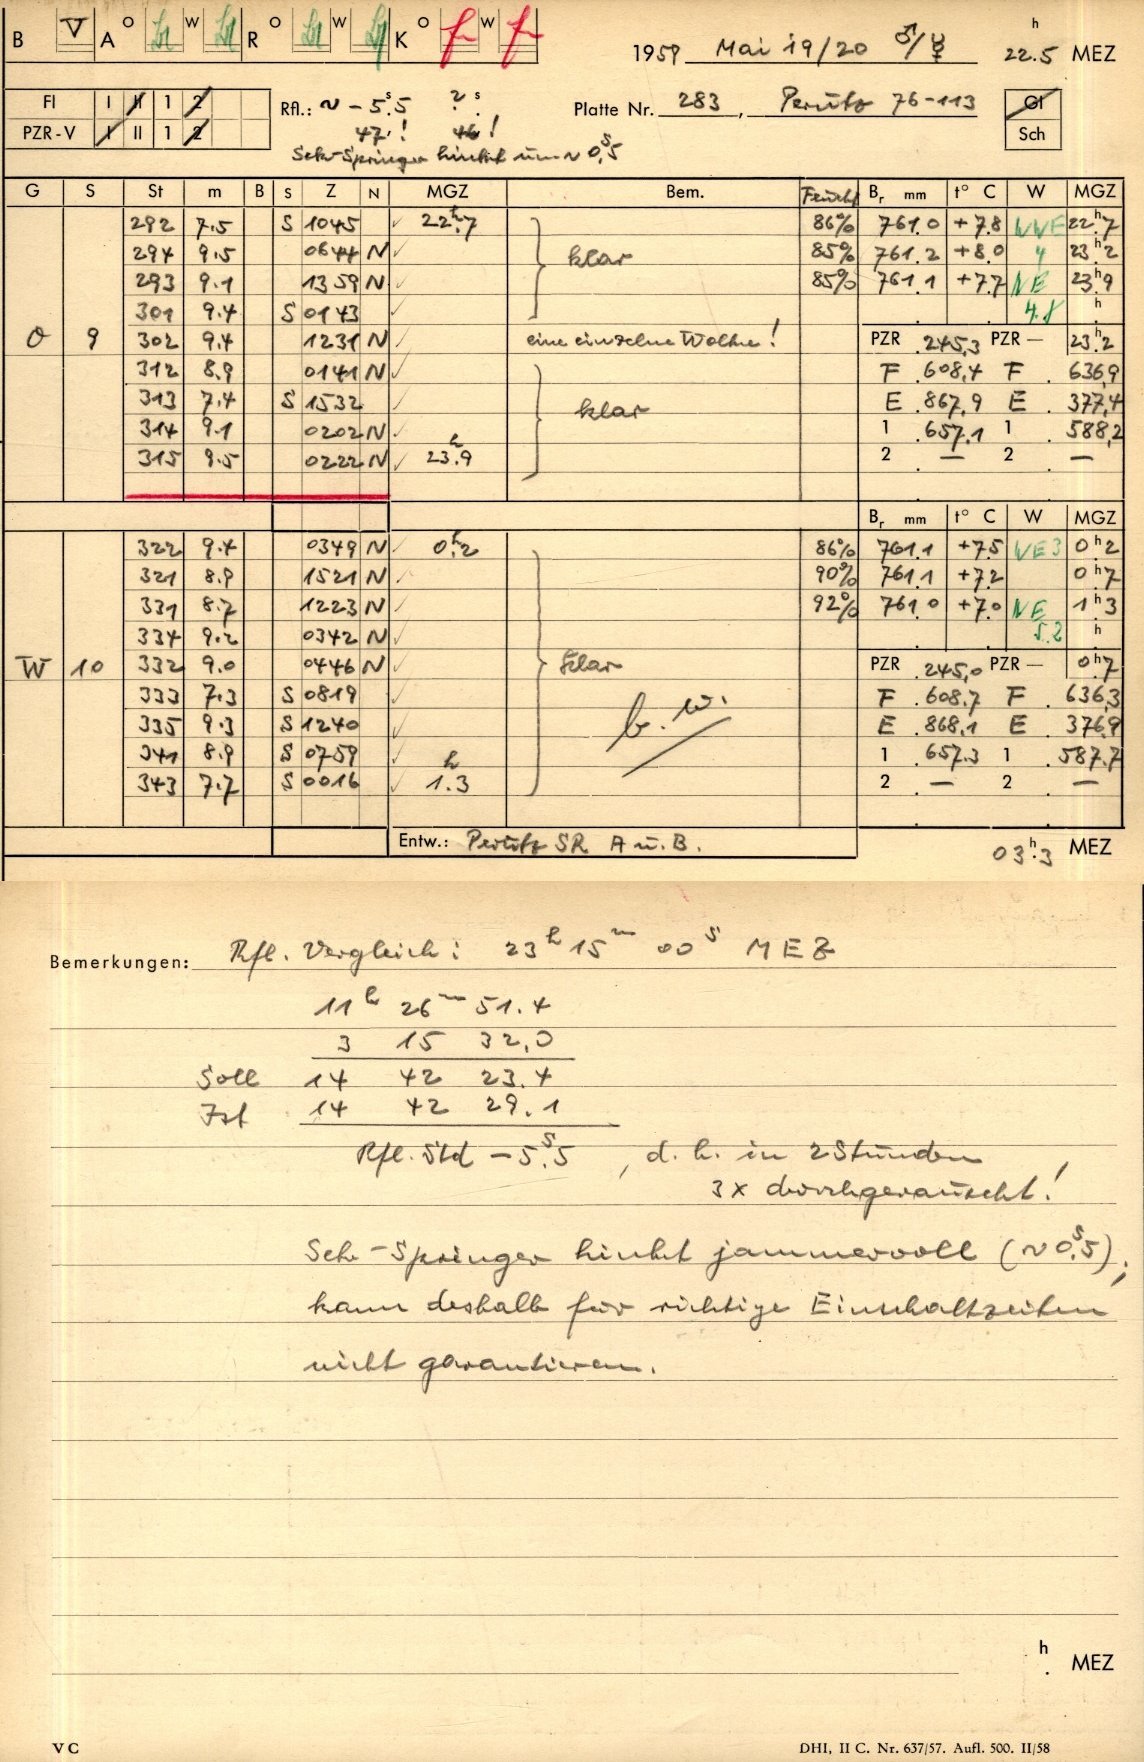 B V A O W R O W K O W
1959 Mai 19/20 ♂/☿ 22.5 h MEZ
Fl I II 1 2
PZR-V I II 1 2
Rfl.: ~ -5.s5 ?.s
47! 46!
Sek-Springer hinkt um ~ 0.s5
Platte Nr. 283, Perutz 76-113
Gl
Sch
G S St m B S Z N MGZ Bem. Feucht Br mm t° C W MGZ
292 7.5 S 1045 ✓ 22.h7 86% 761.0 +7.8 NNE 22.h7
294 9.5 0644 N ✓ klar 85% 761.2 +8.0 4 23.h2
293 9.1 1359 N ✓ 85% 761.1 +7.7 NE 23.h9
301 9.4 S 0143 ✓ 4.8 h
O 9 302 9.4 1231 N ✓ eine einzelne Wolke! PZR 245,3 PZR — 23.h2
312 8.9 0141 N ✓ F 608,4 F 636,9
313 7.4 S 1532 ✓ klar E 867,9 E 377,4
314 9.1 0202 N ✓ 1 657,1 1 588,2
315 9.5 0222 N ✓ 23.h9 2 — 2 —
Br mm t° C W MGZ
322 9.4 0349 N ✓ 0.h2 86% 761.1 +7.5 NE 3 0.h2
321 8.9 1521 N ✓ 90% 761.1 +7.2 0.h7
331 8.7 1223 N ✓ 92% 761.0 +7.0 NE 1.h3
334 9.2 0342 N ✓ 5.2 h
W 10 332 9.0 0446 N ✓ klar PZR 245,0 PZR — 0.h7
333 7.3 S 0819 ✓ F 608.7 F 636,3
335 9.3 S 1240 ✓ b.w. E 868,1 E 376,9
341 8.9 S 0759 ✓ 1 657.3 1 587.7
343 7.7 S 0016 ✓ 1.h3 2 — 2 —
Entw.: Perutz SR A u. B.
03.h3 MEZ
Bemerkungen: Rfl. Vergleich: 23h 15m 00s MEZ
11h 26m 51.4
3 15 32,0
Soll 14 42 23.4
Ist 14 42 29.1
Rfl. Std -5.s5, d.h. in 2 Stunden
3x durchgerauscht!
Sek-Springer hinkt jammervoll (~0.s5);
kann deshalb für richtige Einschaltzeiten
nicht garantieren.
h. MEZ
V C
DHI, II C. Nr. 637/57. Aufl. 500. II/58